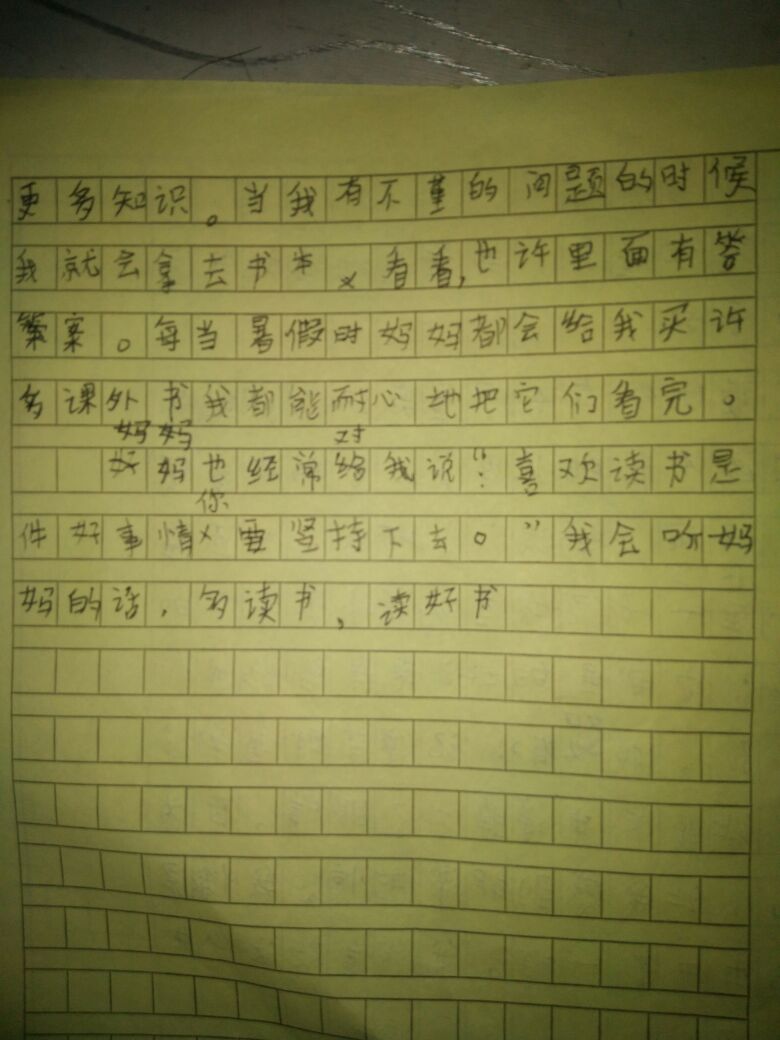 更多知识。当我有不董的问题的时候
我就会拿去书本看看,也许里面有答
案。每当暑假时妈妈都会给我买许
多课外书我都能耐心地把它们看完。
妈妈 对
妈也经常给我说:“喜欢读书是
你
件好事情要坚持下去。”我会听妈
妈的话,多读书,读好书